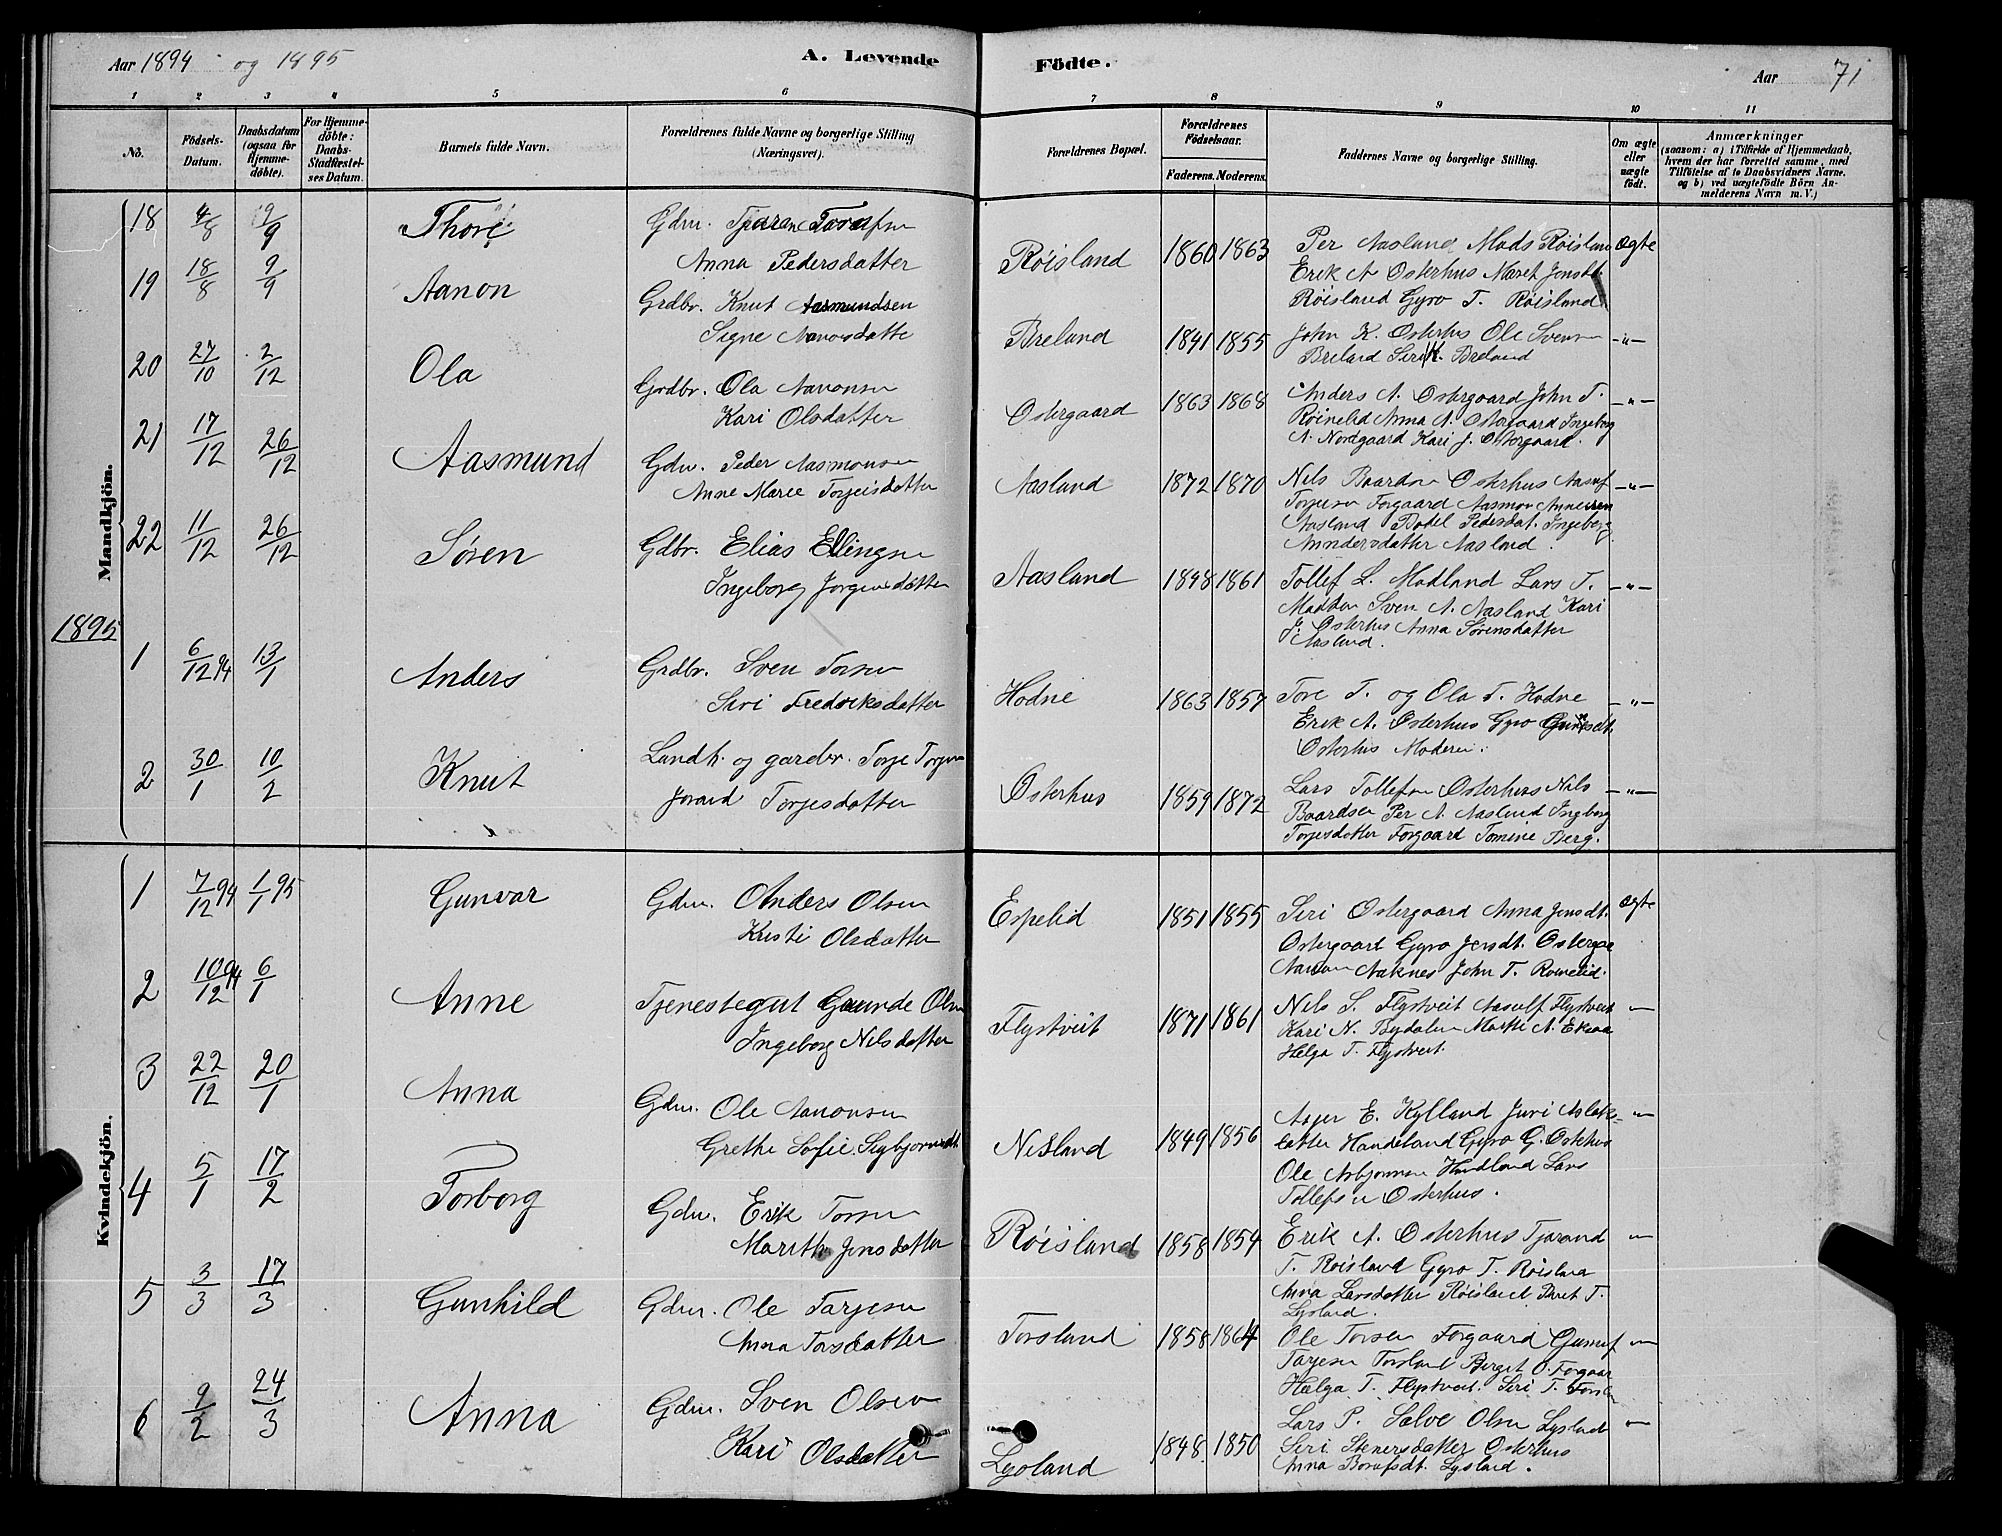 Aar 1894 og 1895
A. Levende
Födte.
Aar 71
1 2 3 4 5 6 7 8 9 10 11
No.
Födsels-Datum.
Daabsdatum (ogsaa for Hjemme-döbte).
For Hjemme-döbte: Daabs-Stadfæstel-ses Datum.
Barnets fulde Navn.
Forældrenes fulde Navne og borgerlige Stilling (Næringsvei).
Forældrenes Bopæl.
Forældrenes Födselsaar.
Faderens. Moderens.
Faddernes Navne og borgerlige Stilling.
Om ægte eller uægte födt.
Anmærkninger
(saasom: a) i Tilfælde af Hjemmedaab, hvem der har forrettet samme, med Tilföielse af to Daabsvidners Navne, og b) ved uægtefödte Börn An-melderens Navn m.V.)
Mandkjön.
18 4/8 9/9 Thore
Gdm.
Anna Pedersdatter
Røisland 1860 1863
Per Aasland Mads Røisland Ægte
Erik A Osterhus Maret Jonsdt
Røisland Gyro T. Røisland
19 18/8 9/9 Aanon
Grdbr. Knut Aasmundsen
Signe
Breland 1841 1855
John K. Osterhus Ole Svensen -"-
Breland Siri K. Breland
20 27/10 2/12 Ola
Grdbr. Ola Aanonsen
Kari Olsdatter
Ostergaard 1863 1868
Anders A. Ostergaard John T. -"-
Røinelid Anna A. Ostergaard Ingeborg
A. Nordgaard Kari J. Ostergaard.
21 17/12 26/12 Aasmund
Gdm. Peder
Anne Marie Torjeisdatter
Aasland 1872 1870
Nils Baardsen Osterhus Aasulf -"-
Torjusen Forgaard
Aasland Bodel Pedersdat. Ingeborg
Anndersdatter Aasland.
22 11/12 26/12 Søren
Gdbr. Elias Ellingsen
Ingeborg Jorgensdatter
Aasland 1848 1861
Tollef L. Modland Lars T. -"-
Sven A. Aasland Kari
J. Osterhus Anna Sørensdatter
Aasland.
1895
1 6/12 94 13/1 Anders
Grdbr. Sven Torsen
Siri Fredriksdatter
Hodne 1863 1857
Tore T. og Ola T. Hodne -"-
Erik A. Osterhus Gyro
Osterhus Moderen.
2 30/1 10/2 Knut
Landh. og gardbr. Torje Torjusen
Torjesdatter
Østerhus 1859 1872
Lars Tollefsen Osterhus Nils -"-
Baardsen Per A. Aaslund Ingborg
Torjesdatter Forgaard Tomine Berg.
Kvindekjön.
1 7/12 94 1/1 95 Gunvor
Gdm. Anders Olsen
Kristi Olsdatter
Espelid 1851 1855
Siri Ostergaard Anna Jonsdt. Ægte
Ostergaard Gyro Jonsdt. Ostergaa
Aaknes John T. Roinelid.
2 10/12 94 6/1 Anne
Tjenestegut Gunde Olsen
Ingeborg Nilsdatter
Flystveit 1871 1861
Nils S. Flystveit Aasulf Flystveit -"-
Kari N. Bydalen
Helga T. Flystveit.
3 22/12 20/1 Anna
Gdm. Ole Aanonsen
Grethe Sofie Sigbjørnsdt.
Nesland 1849 1856
E. Kylland Juri Aslaks- -"-
datter Handeland Gyro G. Osterhus
Ole Asbjornsen Handland Lars
Tollefsen Osterhus.
4 5/1 17/2 Torborg
Gdm. Erik Torsen
Marithe Jonsdatter
Røisland 1858 1854
Erik A. Osterhus Tjarand -"-
T. Røisland Gyro T. Røisland
Anna Larsdatter Røisland T.
Lysland.
5 3/3 17/3 Gunhild
Gdm. Ole Tarjesen
Anna Torsdatter
Torsland 1858 1864
Ole Torsen Forgaard Gunuf -"-
Tarjesen Torsland Berget O. Forgaar
Helga T. Flystveit. Siri T.
6 9/2 24/3 Anna
Gdm. Sven Olsen
Kari Olsdatter
Lysland 1848 1850
Lars P. Salve Olsen Lysland -"-
Siri Stenersdatter Osterhus
Anna Lysland.